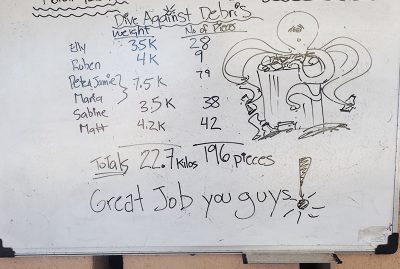 Dive Against Debris
Weight No of Pieces
Elly 3.5K 28
Ruben 4K 9
Pete & Jamie } 7.5K 79
Maria
Sabine 3.5K 38
Matt 4.2K 42
Totals 22.7 kilos 196 pieces
Great Job you guys!